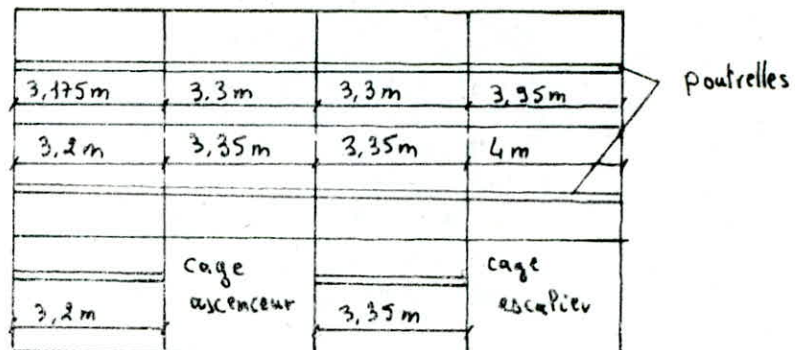 3,175m 3.3m 3,3m 3,95m
poutrelles
3,2m 3,35m 3,35m 4m
cage
ascenceur
cage
escalier
3,2m 3,35m